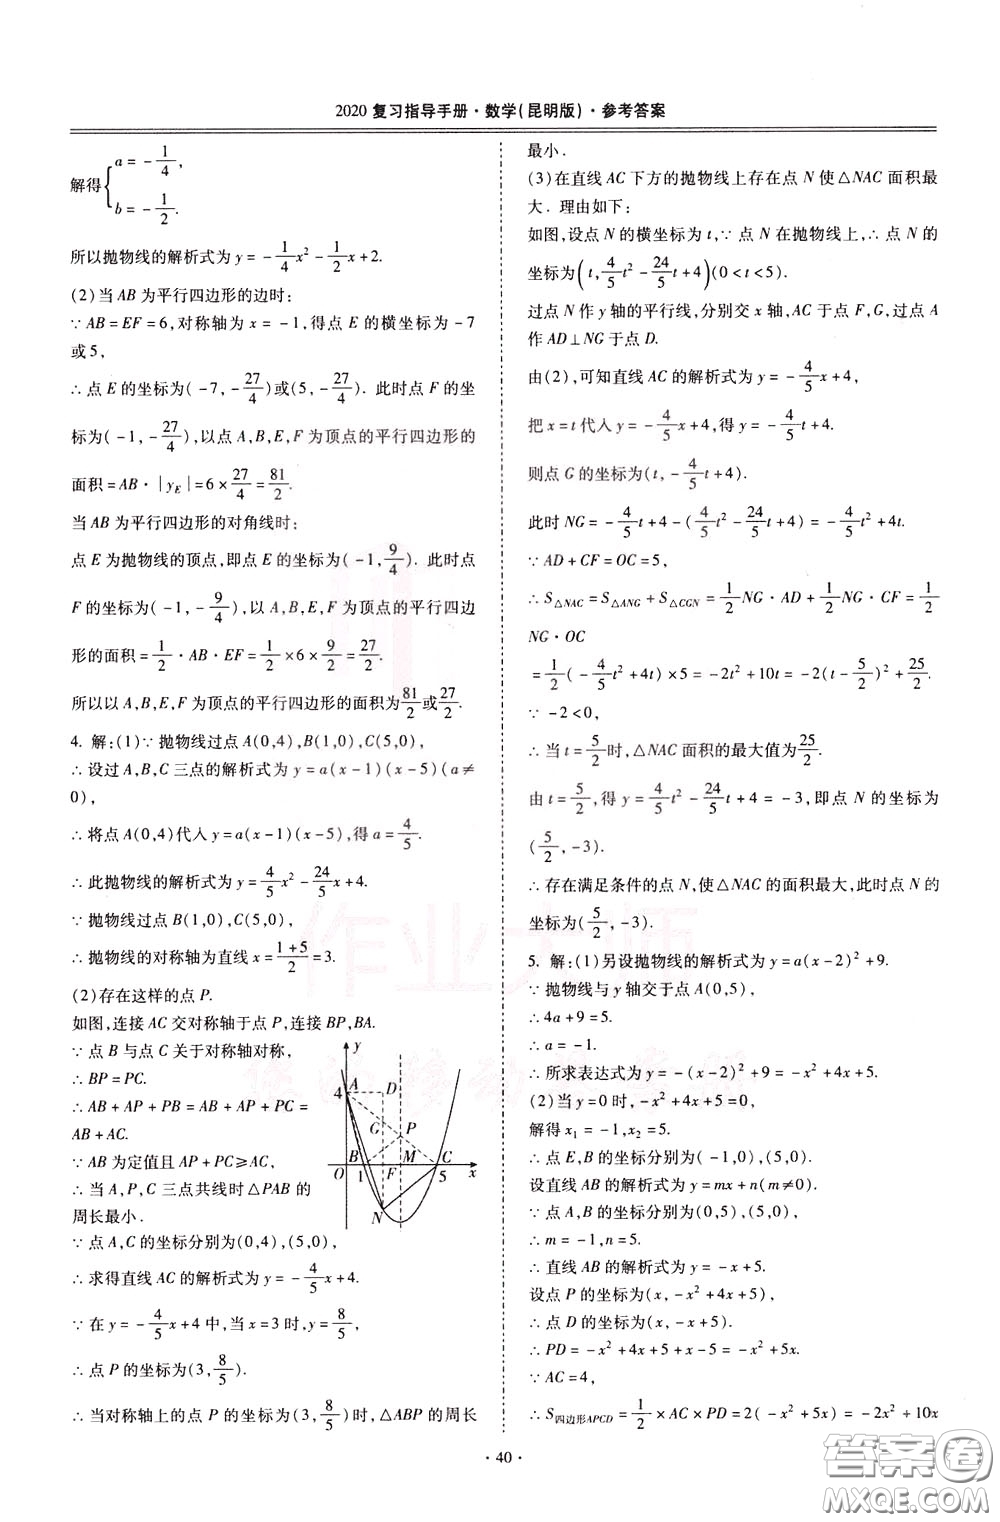 2020 复习指导手册·数学(昆明版)·参考答案
解得{a = -1/4,
b = -1/2.
所以抛物线的解析式为 y = -1/4x² - 1/2x + 2.
(2)当 AB 为平行四边形的边时:
∵ AB = EF = 6,对称轴为 x = -1,得点 E 的横坐标为 -7
或 5,
∴ 点 E 的坐标为(-7, -27/4)或(5, -27/4). 此时点 F 的坐
标为(-1, -27/4),以点 A,B,E,F 为顶点的平行四边形的
面积 = AB·|y_E| = 6 × 27/4 = 81/2.
当 AB 为平行四边形的对角线时:
点 E 为抛物线的顶点,即点 E 的坐标为(-1, 9/4). 此时点
F 的坐标为(-1, -9/4),以 A,B,E,F 为顶点的平行四边
形的面积 = 1/2·AB·EF = 1/2 × 6 × 9/2 = 27/2.
所以以 A,B,E,F 为顶点的平行四边形的面积为81/2或27/2.
4. 解:(1)∵ 抛物线过点 A(0,4),B(1,0),C(5,0),
∴ 设过 A,B,C 三点的解析式为 y = a(x-1)(x-5)(a≠
0),
∴ 将点 A(0,4)代入 y = a(x-1)(x-5),得 a = 4/5.
∴ 此抛物线的解析式为 y = 4/5x² - 24/5x + 4.
∵ 抛物线过点 B(1,0),C(5,0),
∴ 抛物线的对称轴为直线 x = (1+5)/2 = 3.
(2)存在这样的点 P.
如图,连接 AC 交对称轴于点 P,连接 BP,BA.
∵ 点 B 与点 C 关于对称轴对称,
∴ BP = PC.
∴ AB + AP + PB = AB + AP + PC =
AB + AC.
∵ AB 为定值且 AP + PC ≥ AC,
∴ 当 A,P,C 三点共线时△PAB 的
周长最小.
y
4 A D
G
P
B M C
O 1 F 5 x
N
∵ 点 A,C 的坐标分别为(0,4),(5,0),
∴ 求得直线 AC 的解析式为 y = -4/5x + 4.
∵ 在 y = -4/5x + 4 中,当 x = 3 时,y = 8/5,
∴ 点 P 的坐标为(3, 8/5).
∴ 当对称轴上的点 P 的坐标为(3, 8/5)时,△ABP 的周长
最小.
(3)在直线 AC 下方的抛物线上存在点 N 使△NAC 面积最
大. 理由如下:
如图,设点 N 的横坐标为 t,∵ 点 N 在抛物线上,∴ 点 N 的
坐标为(t, 4/5t² - 24/5t + 4)(0 < t < 5).
过点 N 作 y 轴的平行线,分别交 x 轴,AC 于点 F,G,过点 A
作 AD⊥NG 于点 D.
由(2),可知直线 AC 的解析式为 y = -4/5x + 4,
把 x = t 代入 y = -4/5x + 4,得 y = -4/5t + 4.
则点 G 的坐标为(t, -4/5t + 4).
此时 NG = -4/5t + 4 - (4/5t² - 24/5t + 4) = -4/5t² + 4t.
∵ AD + CF = OC = 5,
∴ S△NAC = S△ANG + S△CGN = 1/2NG·AD + 1/2NG·CF = 1/2
NG·OC
= 1/2(-4/5t² + 4t) × 5 = -2t² + 10t = -2(t - 5/2)² + 25/2.
∵ -2 < 0,
∴ 当 t = 5/2时,△NAC 面积的最大值为25/2.
由 t = 5/2,得 y = 4/5t² - 24/5t + 4 = -3,即点 N 的坐标为
(5/2, -3).
∴ 存在满足条件的点 N,使△NAC 的面积最大,此时点 N 的
坐标为(5/2, -3).
5. 解:(1)另设抛物线的解析式为 y = a(x-2)² + 9.
∵ 抛物线与 y 轴交于点 A(0,5),
∴ 4a + 9 = 5.
∴ a = -1.
∴ 所求表达式为 y = -(x-2)² + 9 = -x² + 4x + 5.
(2)当 y = 0 时,-x² + 4x + 5 = 0,
解得 x₁ = -1,x₂ = 5.
∴ 点 E,B 的坐标分别为(-1,0),(5,0),
设直线 AB 的解析式为 y = mx + n(m≠0).
∵ 点 A,B 的坐标分别为(0,5),(5,0),
∴ m = -1,n = 5.
∴ 直线 AB 的解析式为 y = -x + 5.
设点 P 的坐标为(x, -x² + 4x + 5),
∴ 点 D 的坐标为(x, -x + 5).
∴ PD = -x² + 4x + 5 + x - 5 = -x² + 5x.
∵ AC = 4,
∴ S四边形APCD = 1/2 × AC × PD = 2(-x² + 5x) = -2x² + 10x
·40·
作业大师
答案圈
MXQE.COM